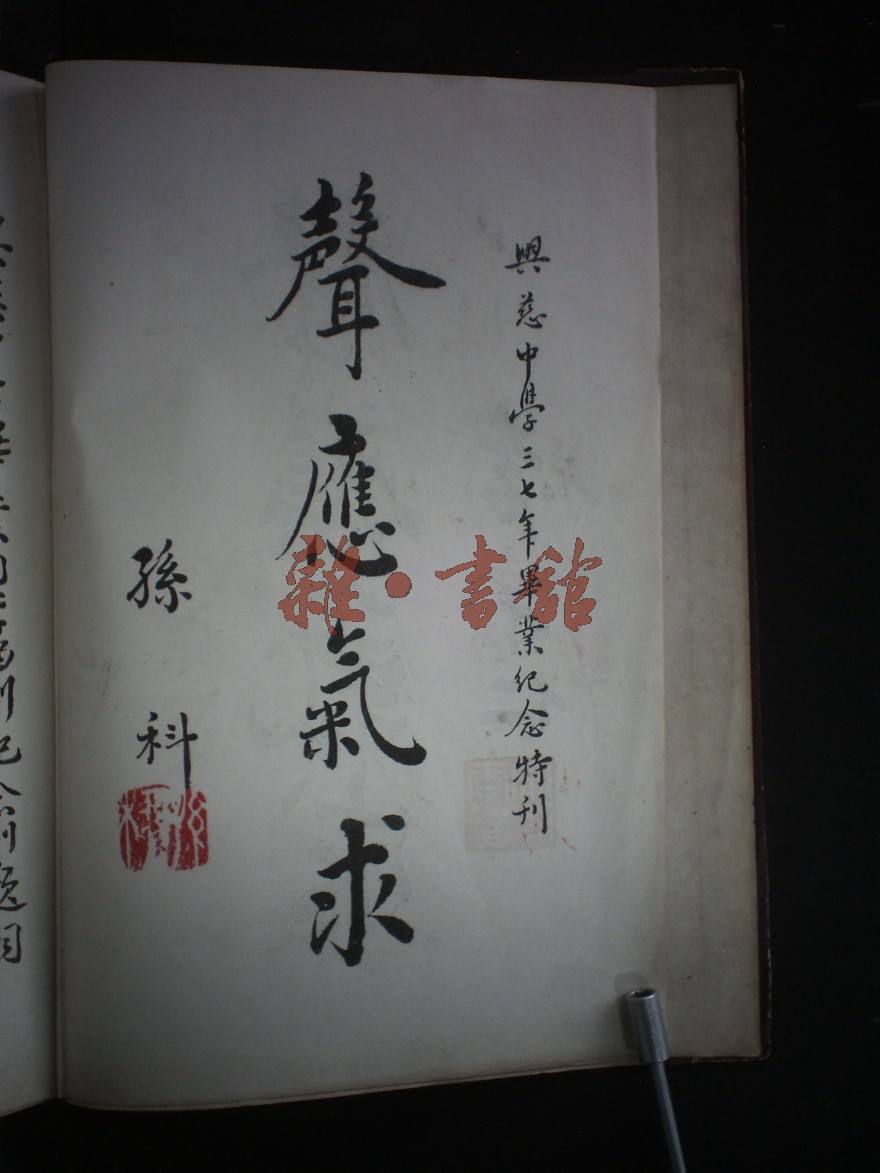 興慈中學三七年畢業紀念特刊
聲應氣求
孫科
雜·書館